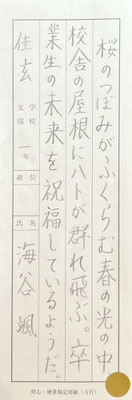 桜のつぼみがふくらむ春の光の中
校舎の屋根にハトが群れ飛ぶ。卒
業生の未来を祝福しているようだ。
佳玄
学校
支部
一年
級位
氏名
海谷颯
書心・硬筆規定用紙（3行）